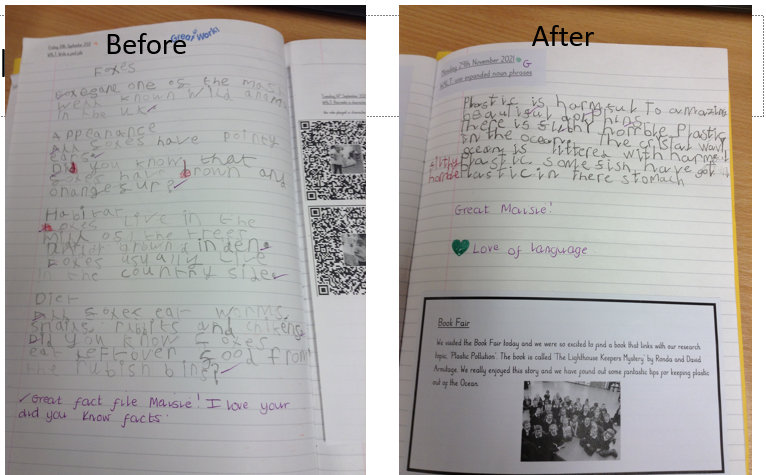 Before
Great Work!
Friday 10th September 2021
Foxes
Foxes are one of the most
well known wild anam
in the UK
Appearance
All foxes have pointy
ears.
Did you know that
foxes have brown and
orange fur?
Habitat
Foxes live in the
of the trees
under ground in den.
Foxes usually live
in the country side
Diet
All foxes eat worms,
snails, rubbits and
Did you know foxes
eat leftover food from
the rubish bins?
Great fact file Maisie! I love your
did you know facts.
After
Monday 29th November 2021
WALT: use expanded noun phrases
G
Plastic is harmful to amazing
beautiful dolphins.
There is filthy horrible Plastic
in the ocean. The cristal wavy
ocean is littered with harmful
Plastic some fish have got
filthy
horrible Plastic in there stomach
Great Maisie!
Love of language
Book Fair
We visited the Book Fair today and we were so excited to find a book that links with our research
topic, 'Plastic Pollution'. The book is called 'The Lighthouse Keepers Mystery' by Ronda and David
Armitage. We really enjoyed this story and we have found out some fantastic tips for keeping plastic
out of the Ocean.